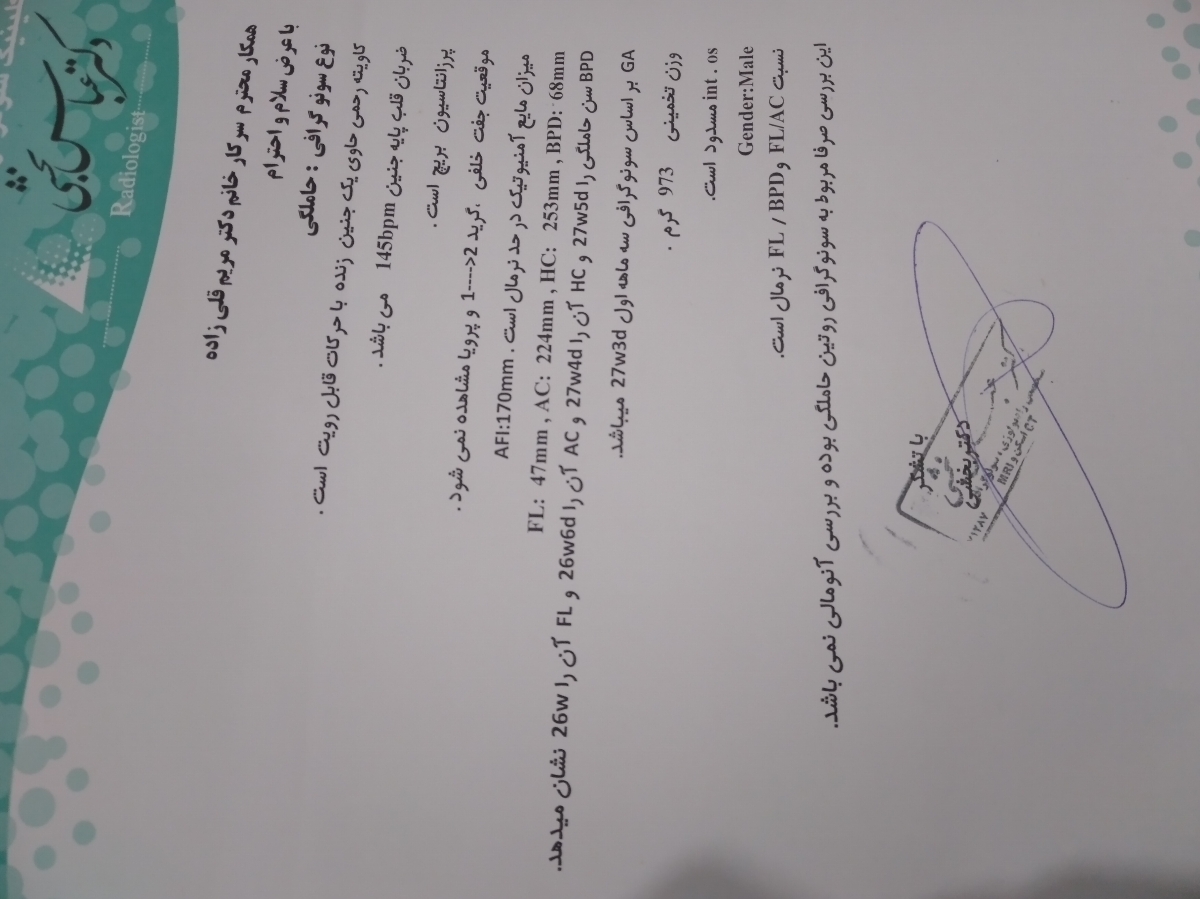 دکتر عباس
Radiologist
همکار محترم سرکار خانم دکتر مریم قلی زاده
با عرض سلام و احترام
نوع سونوگرافی : حاملگی
کاویته رحمی حاوی یک جنین زنده با حرکات قابل رویت است .
ضربان قلب پایه جنین 145bpm می باشد .
پرزانتاسیون بریچ است .
موقعیت جفت خلفی ،گرید 2<----1 و پرویا مشاهده نمی شود .
میزان مایع آمنیوتیک در حد نرمال است . AFI:170mm
FL: 47mm , AC: 224mm , HC: 253mm , BPD: 68mm
BPD سن حاملگی را 27w5d و HC آن را 27w4d و AC آن را 26w6d و FL آن را 26w نشان میدهد.
GA بر اساس سونوگرافی سه ماهه اول 27w3d میباشد.
وزن تخمینی 973 گرم .
int . os مسدود است.
Gender:Male
نسبت FL/AC و FL / BPD نرمال است.
این بررسی صرفا مربوط به سونوگرافی روتین حاملگی بوده و بررسی آنومالی نمی باشد.
با تشکر
دکتر بخشی
CT اسکن و MRI